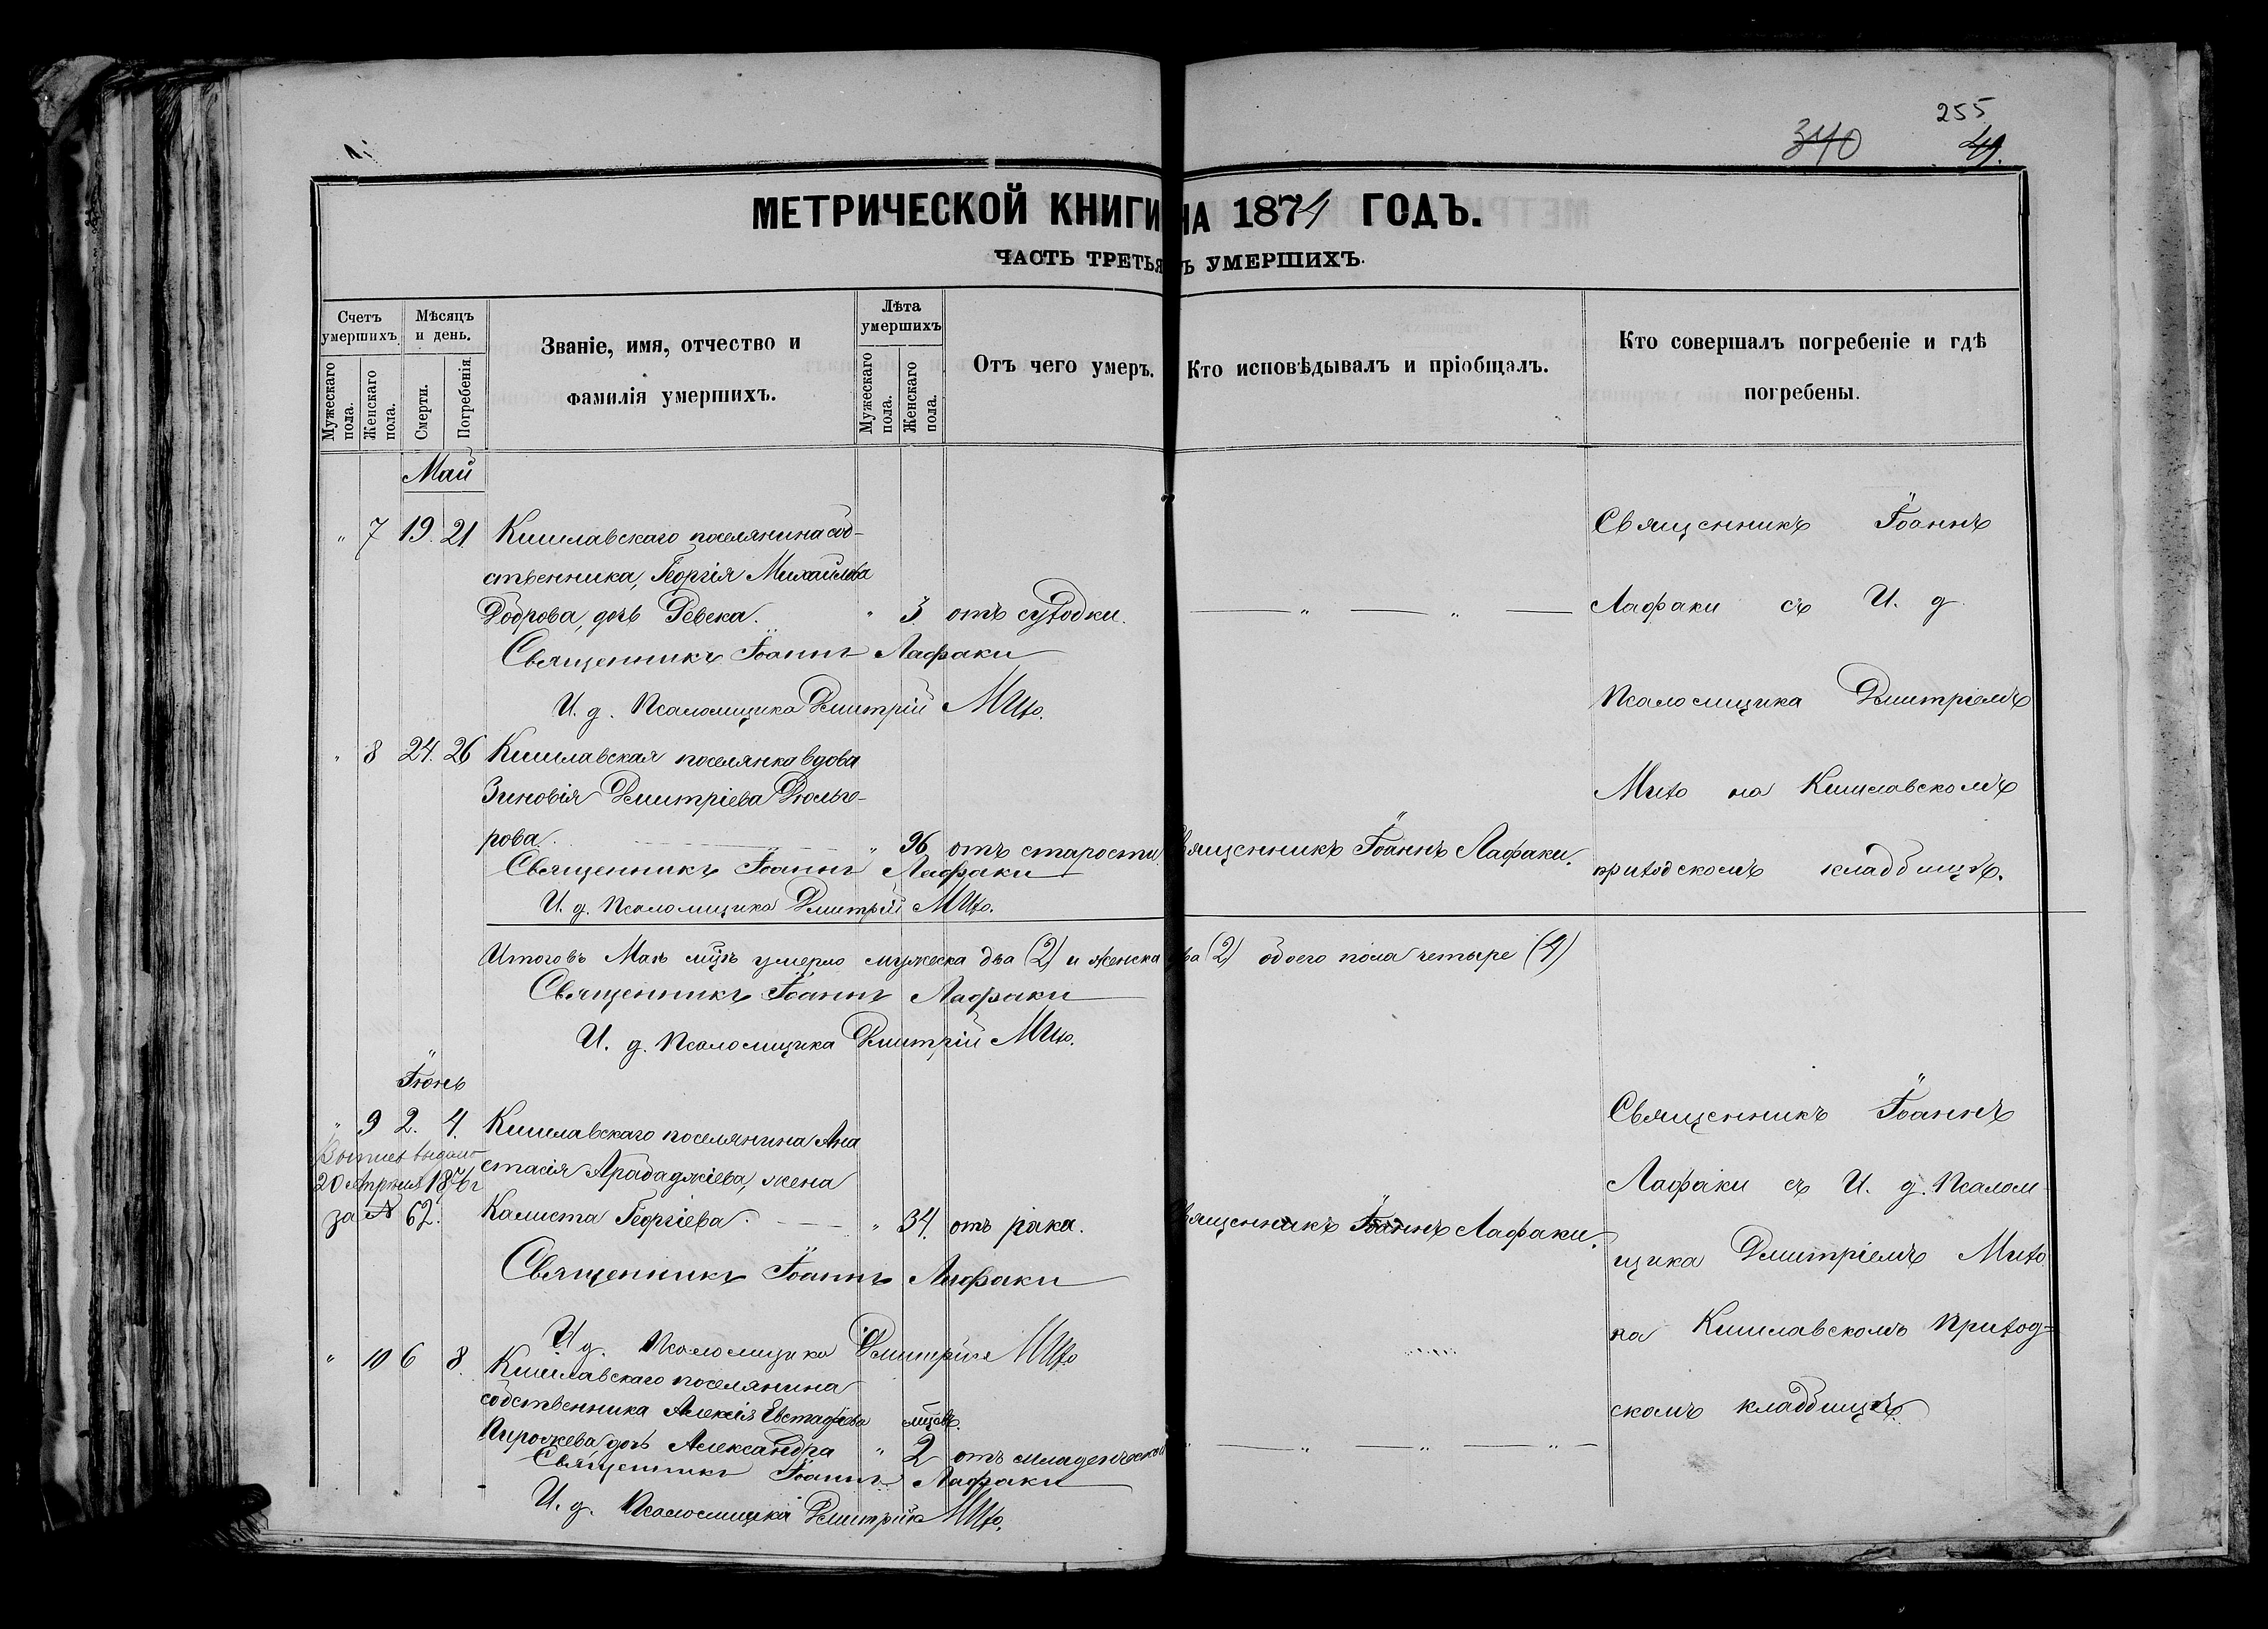 255
340
49.
МЕТРИЧЕСКОЙ КНИГИ НА 1874 ГОДЪ.
ЧАСТЬ ТРЕТЬЯ УМЕРШИХЪ.
Счетъ умершихъ.
Мужескаго пола.
Женскаго пола.
Мѣсяцъ и день.
Смерти.
Погребенія.
Званіе, имя, отчество и
фамилія умершихъ.
Лѣта умершихъ
Мужескаго пола.
Женскаго пола.
Отъ чего умеръ.
Кто исповѣдывалъ и пріобщалъ.
Кто совершалъ погребеніе и гдѣ
погребены.
Май
" 7 19. 21. Кишлавскаго поселянина соб-
ственника, Георгія Михайлова
Доброва, дочь Ревека. " 3. отъ сухотки. — " — " —
Священникъ Іоаннъ Лафаки
И. д. Псаломщика Димитрій Михо.
Священникъ Іоаннъ
Лафаки съ И. д.
Псаломщика Димитріемъ
Михо на Кишлавскомъ
приходскомъ кладбищѣ.
" 8 24. 26 Кишлавская поселянка вдова
Зиновія Димитріева Дюльге-
рова. " 96 отъ старости. Священникъ Іоаннъ Лафаки.
Священникъ Іоаннъ Лафаки
И. д. Псаломщика Димитрій Михо.
Итого въ Маѣ мцѣ умерло мужеска два (2) и женска два (2) обоего пола четыре (4)
Священникъ Іоаннъ Лафаки
И. д. Псаломщика Димитрій Михо.
Іюнь
" 9 2. 4. Кишлавскаго поселянина Ана
стасія Арабаджіева, жена
Калиста Георгіева. — " 34. отъ рака. Священникъ Іоаннъ Лафаки.
выдано
20 Апрѣля 1876 г
за № 62.
Священникъ Іоаннъ Лафаки
И. д. Псаломщика Димитрій Михо
Священникъ Іоаннъ
Лафаки съ И. д. Псалом-
щика Димитріемъ Михо
на Кишлавскомъ приход=
скомъ кладбищѣ.
" 10 6 8. Кишлавскаго поселянина
собственника Алексія Евстафіева мцовъ.
дочь Александра " 2 отъ младенческой — " — " — " —
Священникъ Іоаннъ Лафаки
И. д. Псаломщика Димитрій Михо.